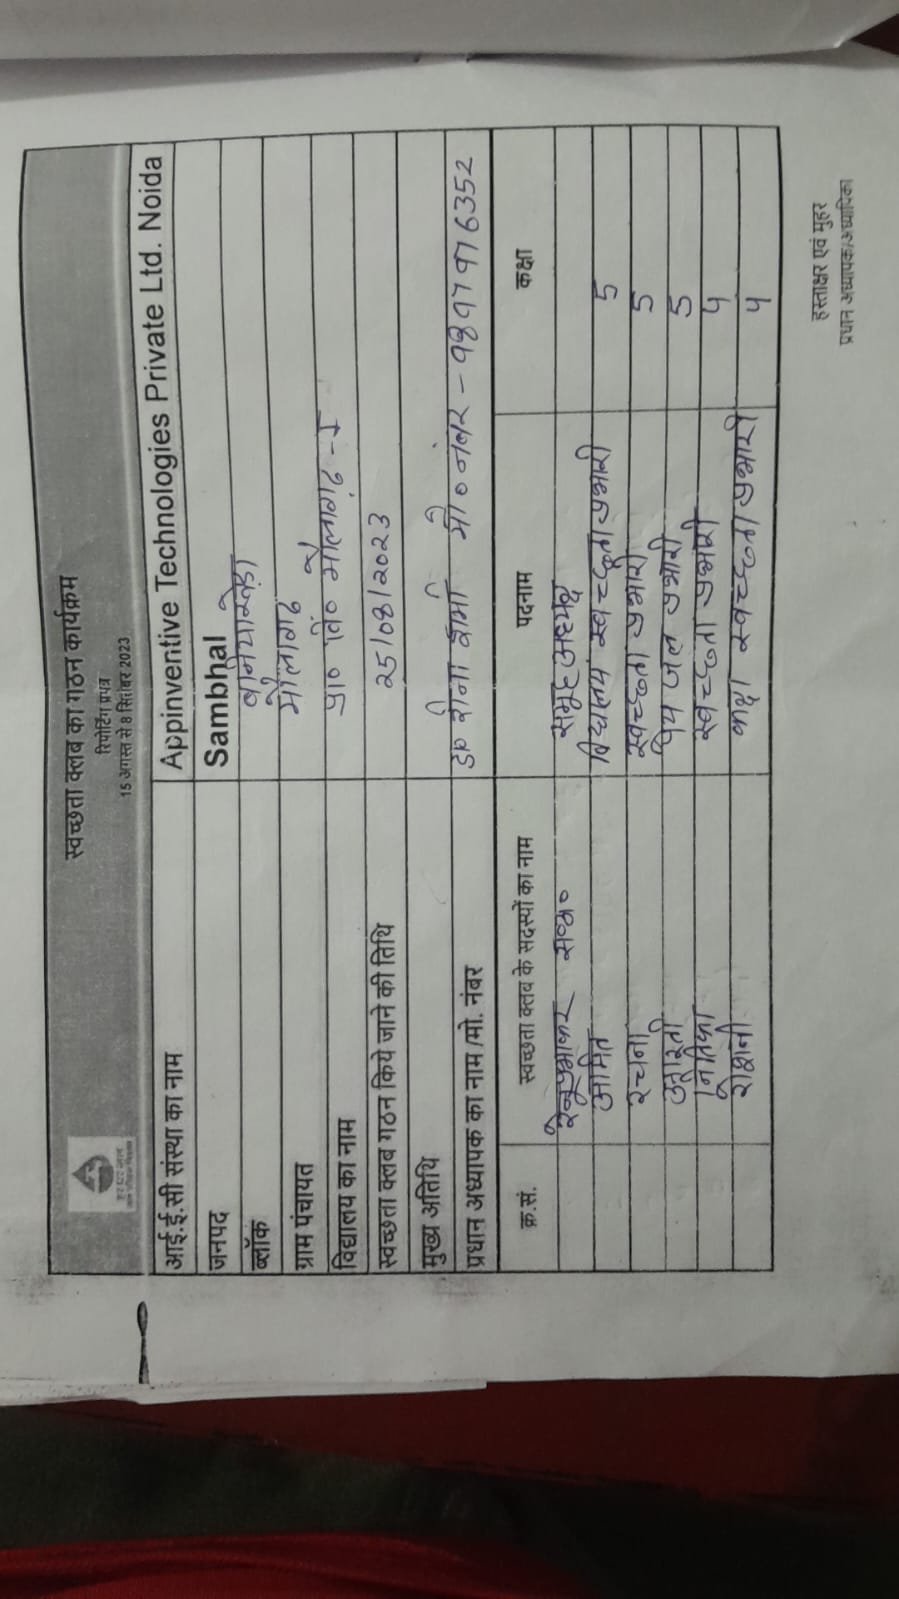 स्वच्छता क्लब का गठन कार्यक्रम
रिपोर्टिंग प्रपत्र
15 अगस्त से 8 सितंबर 2023
हर घर जल
आई.ई.सी संस्था का नाम Appinventive Technologies Private Ltd. Noida
जनपद Sambhal
ब्लॉक बनियाखेड़ा
ग्राम पंचायत मौलागढ़
विद्यालय का नाम प्रा० वि० मौलागढ़ -I
स्वच्छता क्लब गठन किये जाने की तिथि 25/08/2023
मुख्य अतिथि
प्रधान अध्यापक का नाम/मो. नंबर डा० रीना शर्मा मो० नंबर -
क्र.सं. स्वच्छता क्लब के सदस्यों का नाम पदनाम कक्षा
रेनू प्रभाकर स०अ० समूह अध्यक्ष
अमित विद्यालय स्वच्छता प्रभारी 5
रचना स्वच्छता प्रभारी 5
आरती पेय जल प्रभारी 5
स्वच्छता प्रभारी 4
रोशनी कक्षा स्वच्छता प्रभारी 4
हस्ताक्षर एवं मुहर
प्रधान अध्यापक/अध्यापिका